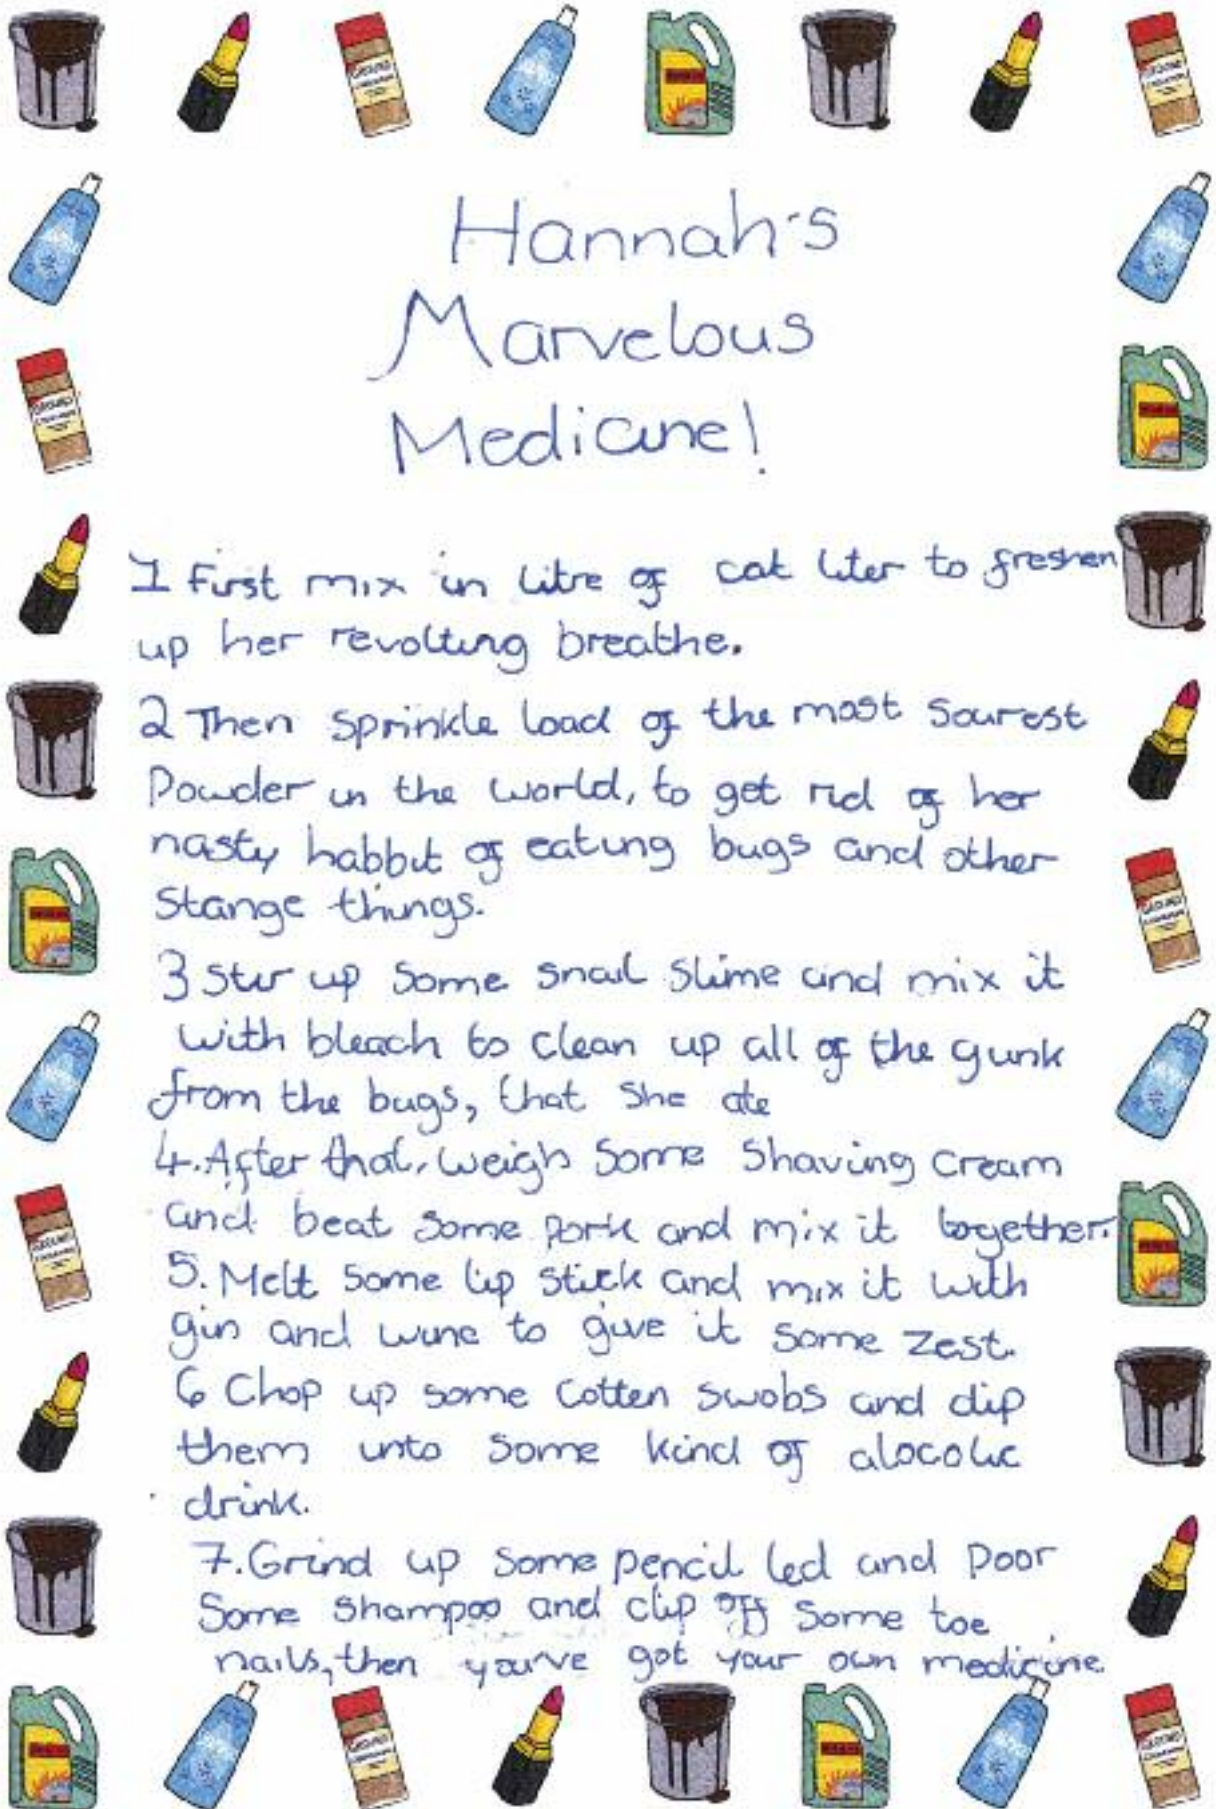 Hannah's
Marvelous
Medicine!
1 First mix in litre of cat liter to freshen
up her revolting breathe.
2 Then sprinkle load of the most sourest
Powder in the world, to get rid of her
nasty habbit of eating bugs and other
stange things.
3 Stir up some snail slime and mix it
with bleach to clean up all of the gunk
from the bugs, that she ate
4. After that, weigh some shaving cream
and beat some pork and mix it together.
5. Melt some lip stick and mix it with
gin and wine to give it some zest.
6 Chop up some cotten swobs and dip
them into some kind of alocolic
drink.
7. Grind up some pencil led and poor
some shampoo and clip off some toe
nails, then you've got your own medicine.